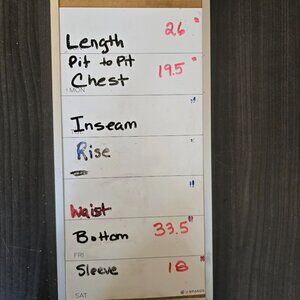 Length 26"
Pit to Pit
Chest 19.5"
MON
Inseam "
Rise "
"
Waist
Bottom 33.5"
FRI
Sleeve 18"
SAT